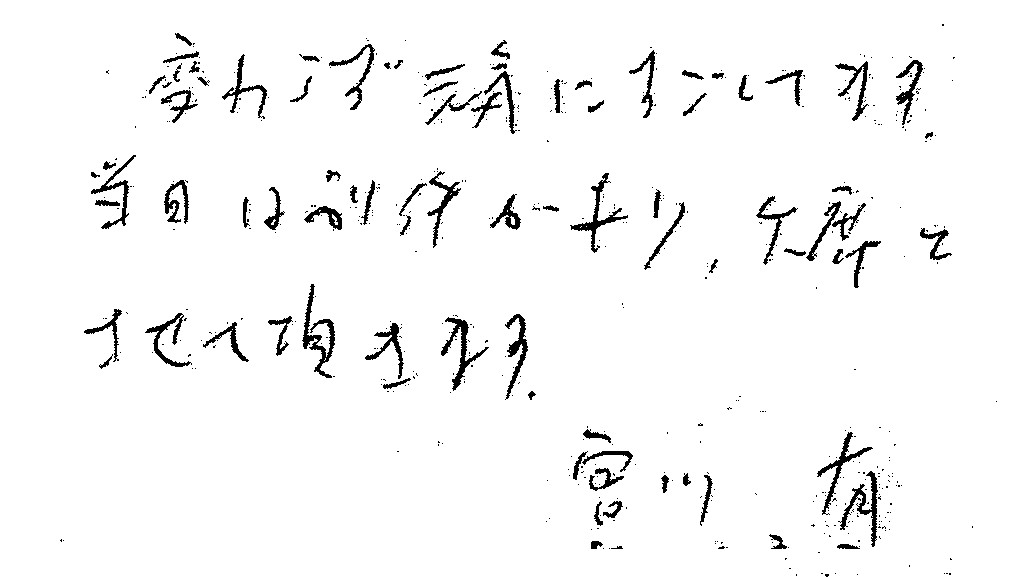 変わらず元気にすごしてます.
当日は別件があり、欠席と
させて頂きます.
宮川 有